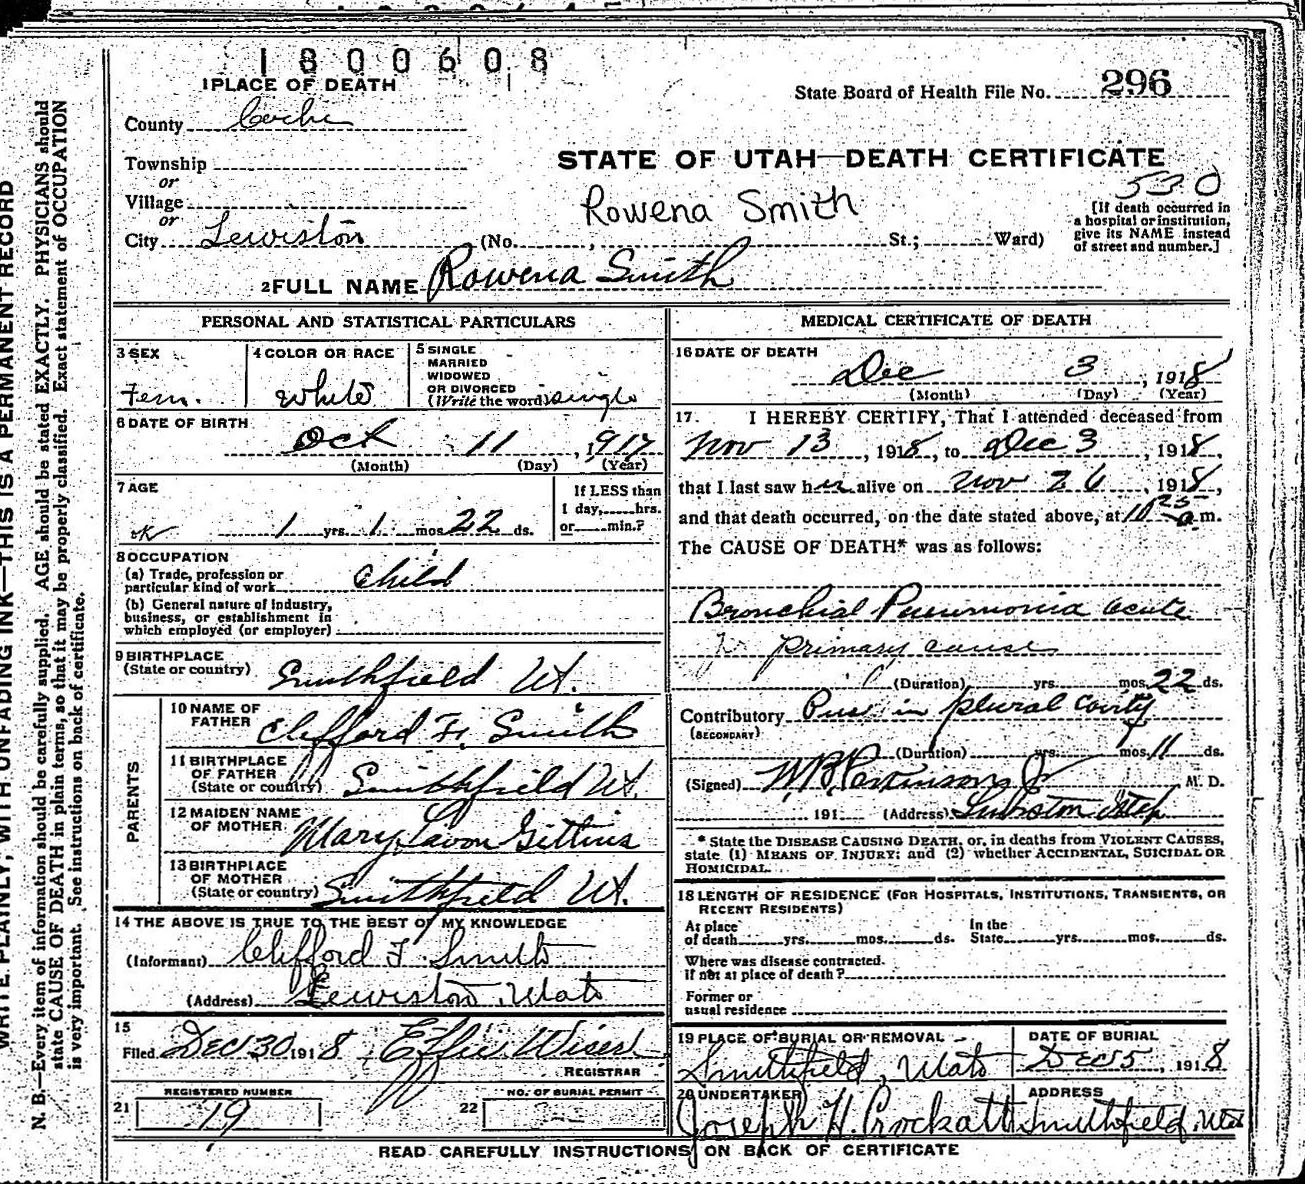 1800608
1 PLACE OF DEATH
State Board of Health File No. 296
County Cache
STATE OF UTAH—DEATH CERTIFICATE
Township
or
Village
or
City Lewiston (No. , St.; Ward)
530
[If death occurred in
a hospital or institution,
give its NAME instead
of street and number.]
Rowena Smith
2 FULL NAME Rowena Smith
PERSONAL AND STATISTICAL PARTICULARS
3 SEX
Fem.
4 COLOR OR RACE
White
5 SINGLE
MARRIED
WIDOWED
OR DIVORCED
(Write the word) single
6 DATE OF BIRTH
Oct 11, 1917
(Month) (Day) (Year)
7 AGE
1 yrs. 1 mos. 22 ds.
If LESS than
1 day, hrs.
or min.?
8 OCCUPATION
(a) Trade, profession or
particular kind of work Child
(b) General nature of industry,
business, or establishment in
which employed (or employer)
9 BIRTHPLACE
(State or country) Smithfield Ut.
PARENTS
10 NAME OF
FATHER Clifford F. Smith
11 BIRTHPLACE
OF FATHER
(State or country) Smithfield Ut.
12 MAIDEN NAME
OF MOTHER Mary Lavon Gittins
13 BIRTHPLACE
OF MOTHER
(State or country) Smithfield Ut.
14 THE ABOVE IS TRUE TO THE BEST OF MY KNOWLEDGE
(Informant) Clifford F Smith
(Address) Lewiston, Utah
15
Filed Dec 30 1918, Effie Wiser
REGISTRAR
REGISTERED NUMBER
21 79
NO. OF BURIAL PERMIT
22
MEDICAL CERTIFICATE OF DEATH
16 DATE OF DEATH
Dec 3, 1918
(Month) (Day) (Year)
17. I HEREBY CERTIFY, That I attended deceased from
Nov 13, 1918, to Dec 3, 1918,
that I last saw her alive on Nov 26, 1918,
and that death occurred, on the date stated above, at 10 25 a m.
The CAUSE OF DEATH* was as follows:
Bronchial Pneumonia acute
primary cause
(Duration) yrs. mos. 22 ds.
Contributory Puss in plural cavity
(SECONDARY)
(Duration) yrs. mos. 11 ds.
(Signed) W.B. Parkinson Jr M. D.
191 (Address)
* State the DISEASE CAUSING DEATH, or, in deaths from VIOLENT CAUSES,
state (1) MEANS OF INJURY; and (2) whether ACCIDENTAL, SUICIDAL OR
HOMICIDAL.
18 LENGTH OF RESIDENCE (FOR HOSPITALS, INSTITUTIONS, TRANSIENTS, OR
RECENT RESIDENTS)
At place In the
of death yrs. mos. ds. State yrs. mos. ds.
Where was disease contracted.
if not at place of death?
Former or
usual residence
19 PLACE OF BURIAL OR REMOVAL
Smithfield, Utah
DATE OF BURIAL
Dec 5, 1918
20 UNDERTAKER
Joseph H. Crockatt
ADDRESS
Smithfield, Utah
READ CAREFULLY INSTRUCTIONS ON BACK OF CERTIFICATE
WRITE PLAINLY, WITH UNFADING INK—THIS IS A PERMANENT RECORD
N. B.—Every item of information should be carefully supplied. AGE should be stated EXACTLY. PHYSICIANS should
state CAUSE OF DEATH in plain terms, so that it may be properly classified. Exact statement of OCCUPATION
is very important. See instructions on back of certificate.